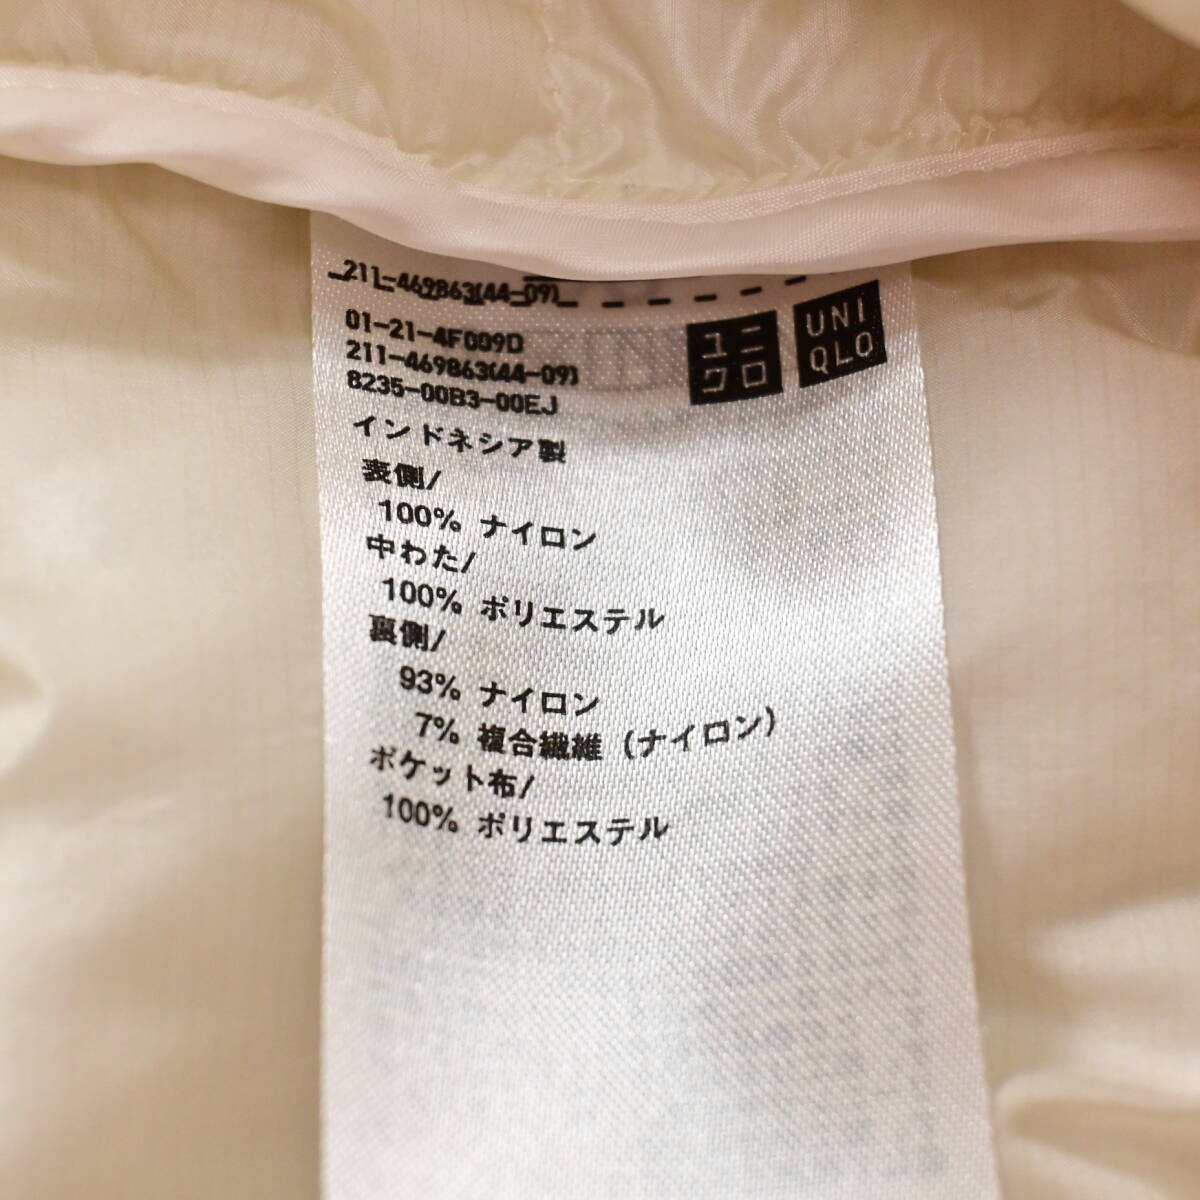 211-469863(44-09)
01-21-4F009D
211-469863(44-09)
8235-00B3-00EJ
ユニ
クロ
UNI
QLO
インドネシア製
表側/
100% ナイロン
中わた/
100% ポリエステル
裏側/
93% ナイロン
7% 複合繊維 (ナイロン)
ポケット布/
100% ポリエステル